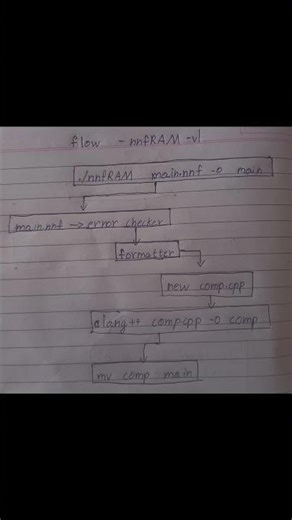 flow - nnfRAM -v1
./nnfRAM main.nnf -o main
main.nnf → error checker
formatter
new comp.cpp
clang++ comp.cpp -o comp
mv comp main